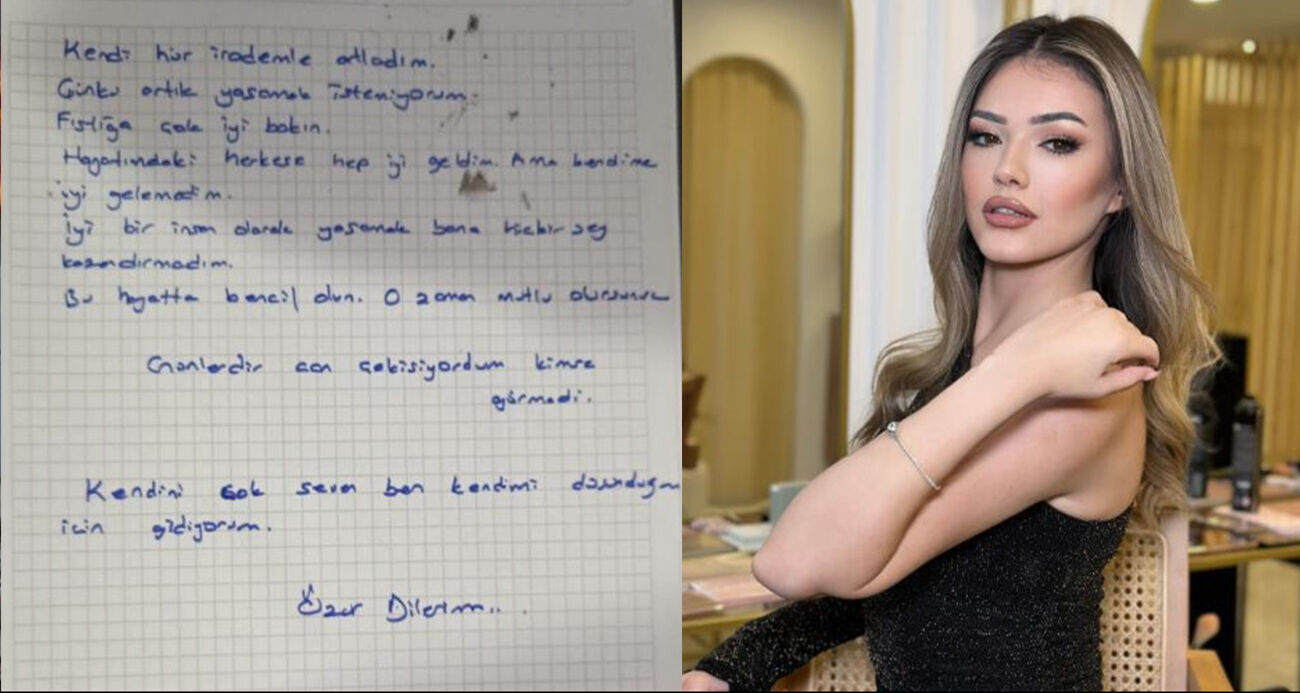 Kendi hür irademle atladım.
Çünkü artık yaşamak istemiyorum.
Fıstığa çok iyi bakın.
Hayatımdaki herkese hep iyi geldim. Ama kendime
iyi gelemedim.
İyi bir insan olarak yaşamak bana hiçbir şey
kazandırmadım.
Bu hayatta bencil olun. O zaman mutlu olursunuz
Günlerdir can çekişiyordum kimse
görmedi.
Kendini çok seven ben kendimi düşündüğüm
için gidiyorum.
Özür Dilerim...